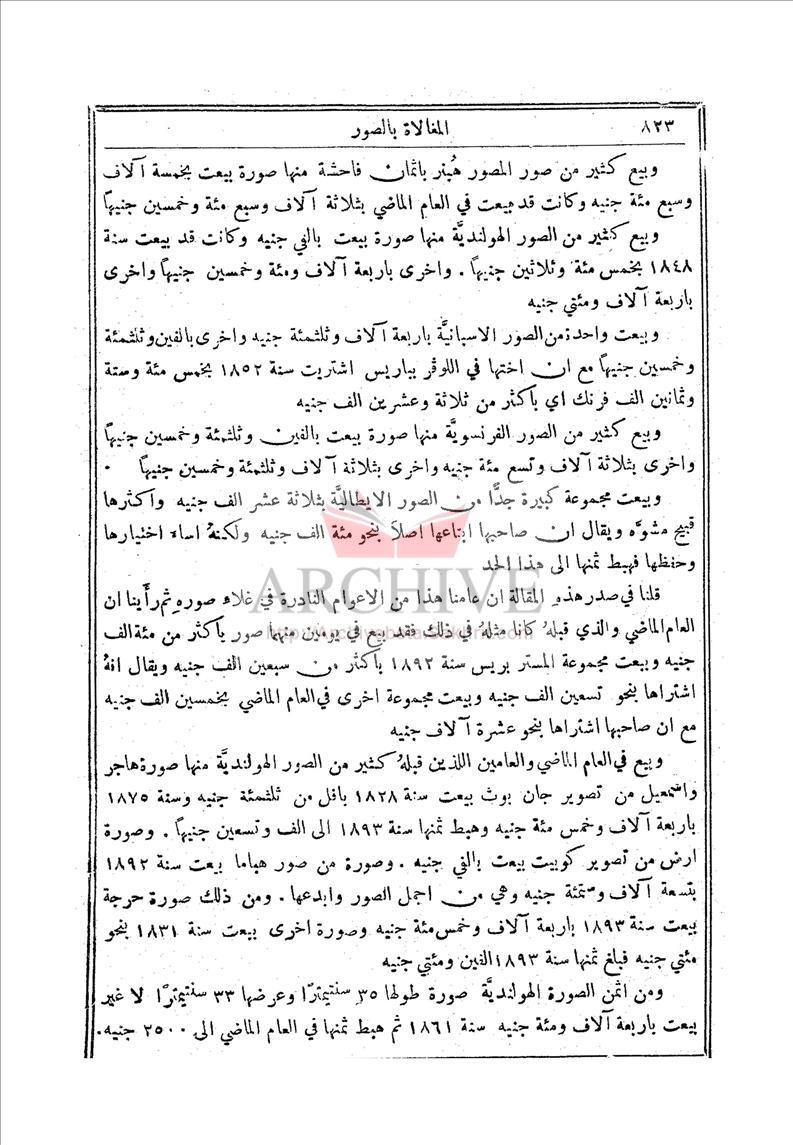 المغالاة بالصور ٨٢٣
وبيع كثير من صور المصور هُبنر باثمان فاحشة منها صورة بيعت بخمسة آلاف
وسبع مئة جنيه وكانت قد بيعت في العام الماضي بثلاثة آلاف وسبع مئة وخمسين جنيهاً
وبيع كثير من الصور الهولنديَّة منها صورة بيعت بالفي جنيه وكانت قد بيعت سنة
١٨٤٨ بخمس مئة وثلاثين جنيهاً . واخرى باربعة آلاف ومئة وخمسين جنيهاً واخرى
باربعة آلاف ومئتي جنيه
وبيعت واحدة من الصور الاسبانيَّة باربعة آلاف وثلثمئة جنيه واخرى بالفين وثلثمئة
وخمسين جنيهاً مع ان اختها في اللوڤر بباريس اشتريت سنة ١٨٥٢ بخمس مئة وستة
وثمانين الف فرنك اي باكثر من ثلاثة وعشرين الف جنيه
وبيع كثير من الصور الفرنسويَّة منها صورة بيعت بالفين وثلثمئة وخمسين جنيهاً
واخرى بثلاثة آلاف وتسع مئة جنيه واخرى بثلاثة آلاف وثلثمئة وخمسين جنيهاً .
وبيعت مجموعة كبيرة جدًّا من الصور الايطاليَّة بثلاثة عشر الف جنيه واكثرها
قبيح مشوَّه ويقال ان صاحبها ابتاعها اصلاً بنحو مئة الف جنيه ولكنهُ اساء اختيارها
وحفظها فهبط ثمنها الى هذا الحد
ARCHIVE
قلنا في صدر هذهِ المقالة ان عامنا هذا من الاعوام النادرة في غلاء صورهِ ثم رأينا ان
العام الماضي والذي قبلهُ كانا مثلهُ في ذلك فقد بيع في يومين منها صور باكثر من مئة الف
جنيه وبيعت مجموعة المستر بريس سنة ١٨٩٢ باكثر من سبعين الف جنيه ويقال انهُ
اشتراها بنحو تسعين الف جنيه وبيعت مجموعة اخرى في العام الماضي بخمسين الف جنيه
مع ان صاحبها اشتراها بنحو عشرة آلاف جنيه
وبيع في العام الماضي والعامين اللذين قبلهُ كثير من الصور الهولنديَّة منها صورة هاجر
واسمعيل من تصوير جان بوث بيعت سنة ١٨٢٨ باقل من ثلثمئة جنيه وسنة ١٨٧٥
باربعة آلاف وخمس مئة جنيه وهبط ثمنها سنة ١٨٩٣ الى الف وتسعين جنيهاً . وصورة
ارض من تصوير كوييت بيعت بالفي جنيه . وصورة من صور هباما بيعت سنة ١٨٩٢
بتسعة آلاف وستمئة جنيه وهي من اجمل الصور وابدعها . ومن ذلك صورة حرجة
بيعت سنة ١٨٩٣ باربعة آلاف وخمس مئة جنيه وصورة اخرى بيعت سنة ١٨٣١ بنحو
مئتي جنيه فبلغ ثمنها سنة ١٨٩٣ الفين ومئتي جنيه
ومن اثمن الصورة الهولنديَّة صورة طولها ٣٥ سنتيمترًا وعرضها ٣٣ سنتيمترًا لا غير
بيعت باربعة آلاف ومئة جنيه سنة ١٨٦١ ثم هبط ثمنها في العام الماضي الى ٢٥٠٠ جنيه.